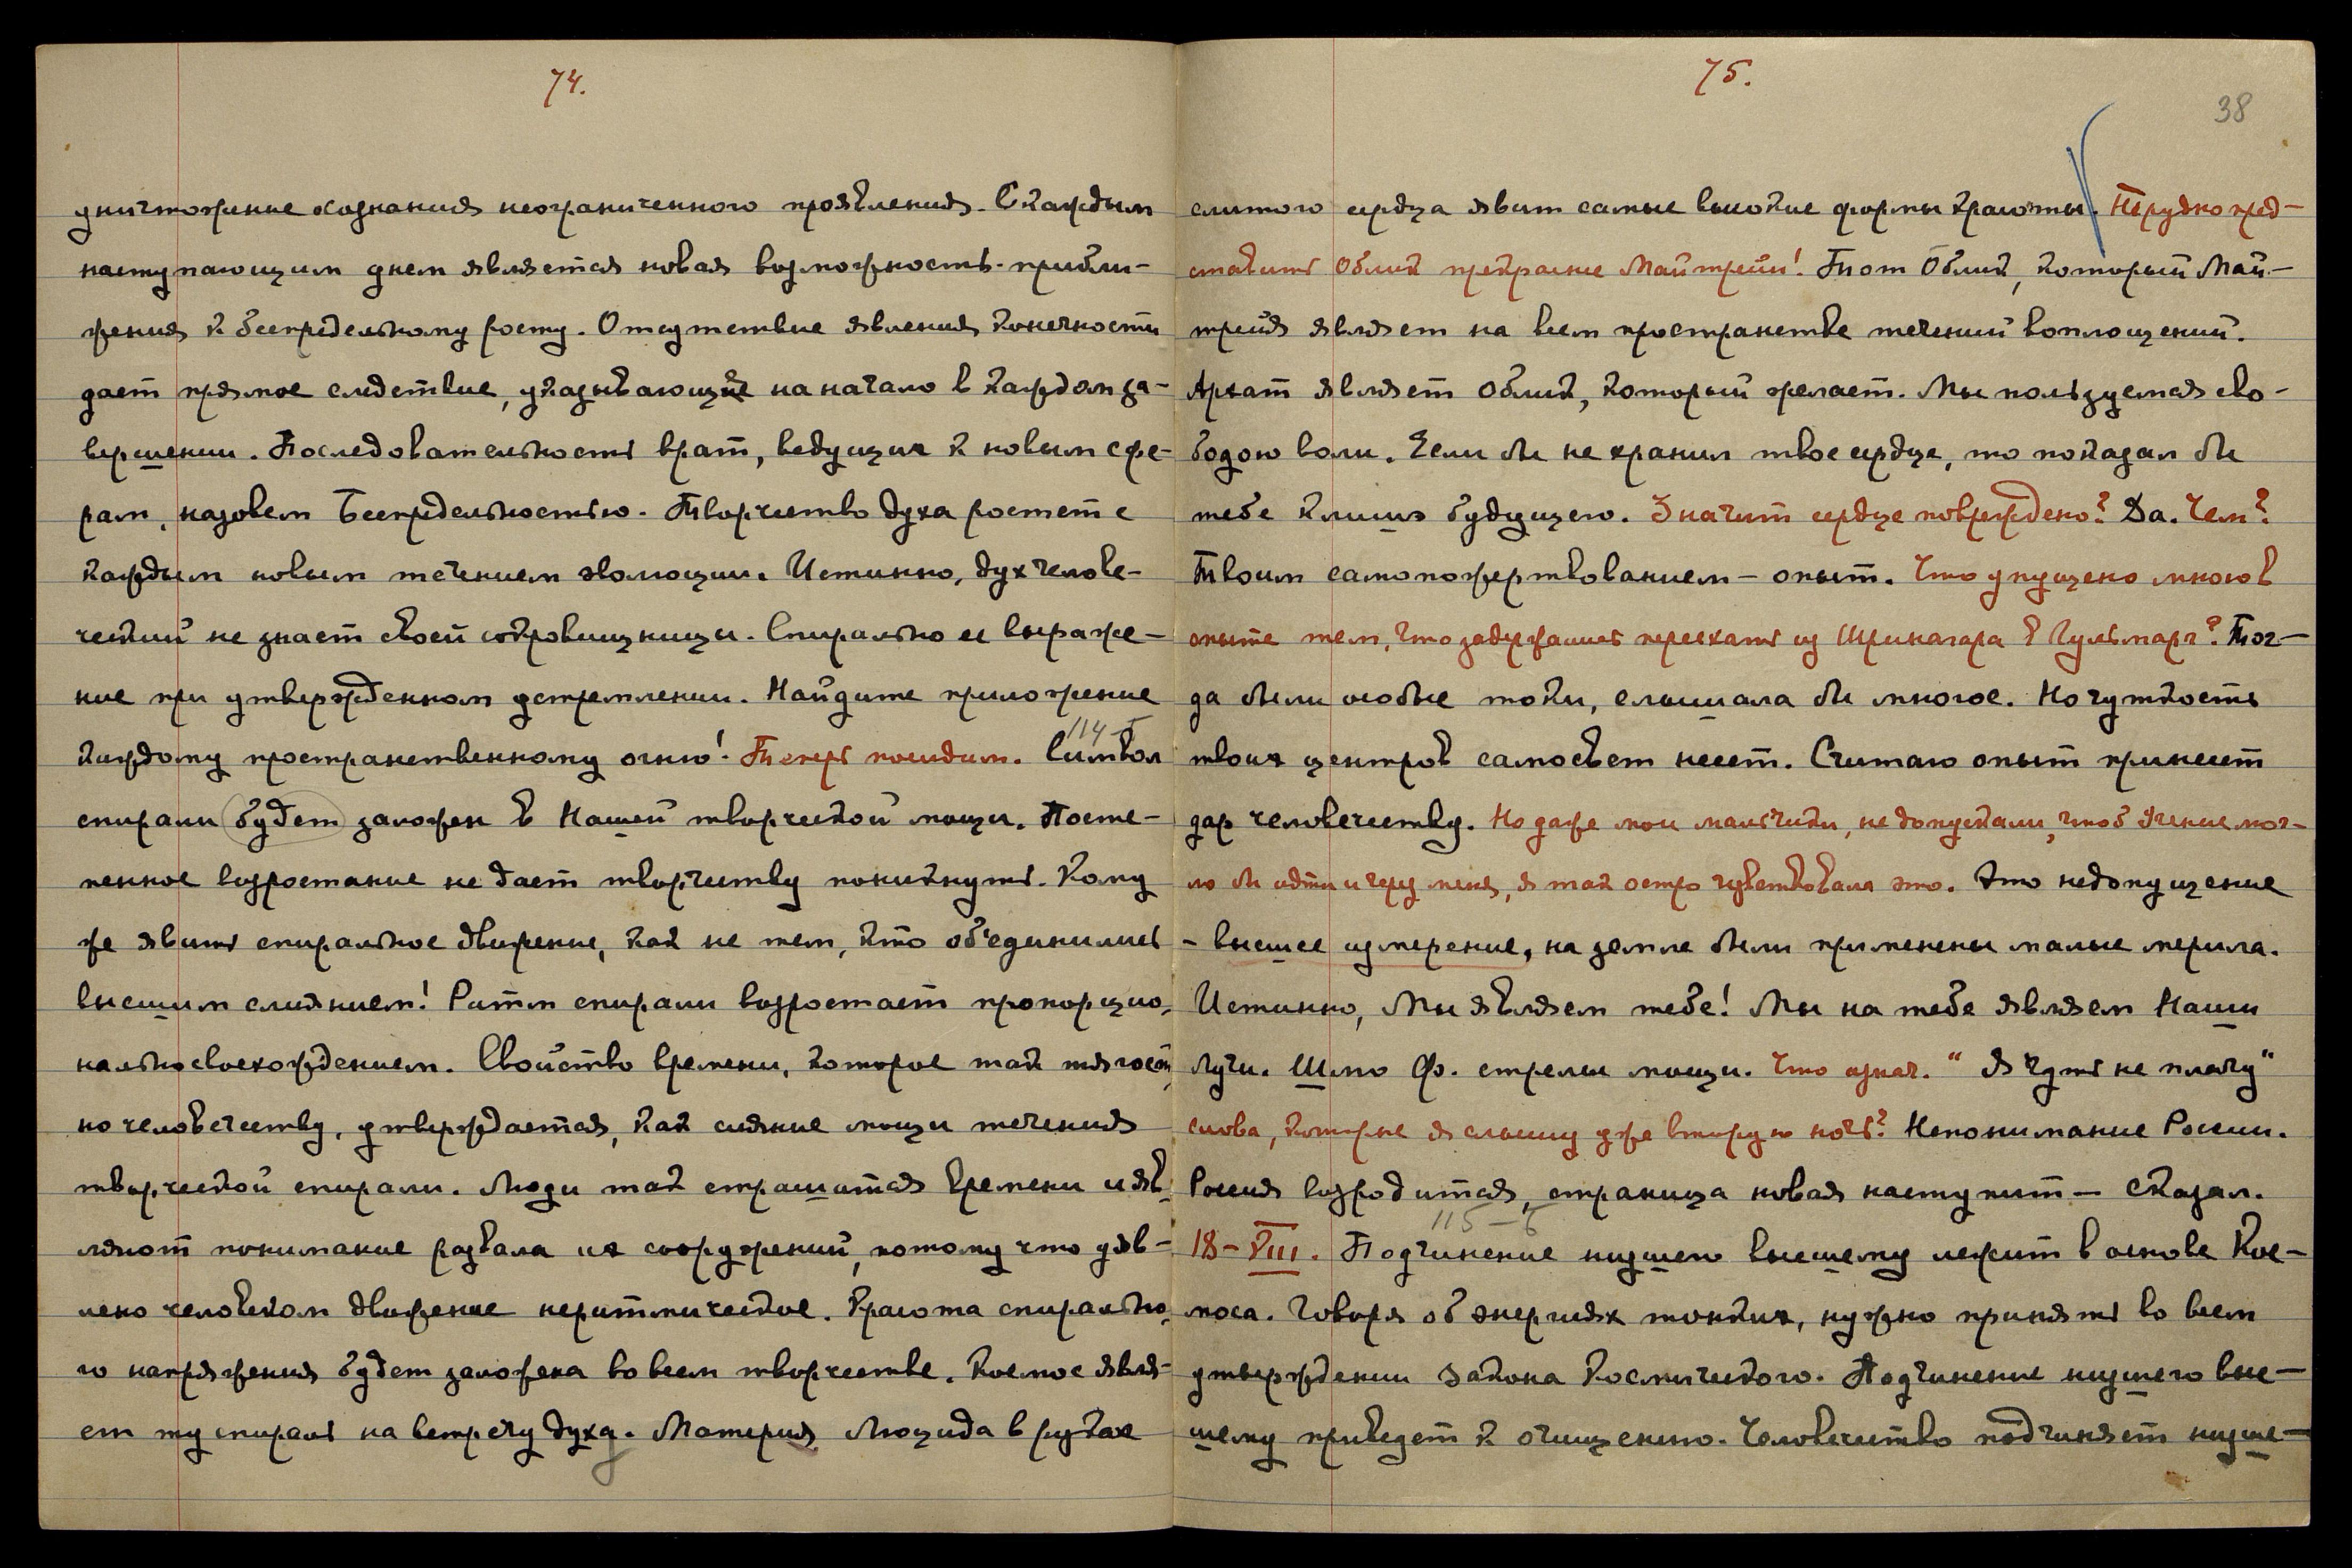 74.
уничтожение сознания неограниченного проявления. С каждым
наступающим днем является новая возможность прибли-
жения к беспредельному росту. Отсутствие явления конечности
дает прямое следствие, указывающее на начало в каждом за-
вершении. Последовательность врат, ведущих к новым сфе-
рам, назовем Беспредельностью. Творчество духа ростет с
каждым новым течением эволюции. Истинно, дух челове-
ческий не знает своей сокровищницы. Спирально ее выраже-
ние при утвержденном устремлении. Найдите приложение
114-Б
каждому пространственному огню! Теперь посидим. Символ
спирали будет заложен в Нашей творческой мощи. Посте-
пенное возростание не дает творчеству поникнуть. Кому
же явить спиральное движение, как не тем, кто об'единились
высшим слиянием! Ритм спирали возростает пропорцио-
нально восхождением. Свойство времени, которое так тягост-
но человечеству, утверждается, как сияние мощи течения
творческой спирали. Люди так страшатся времени и яв-
ляют понимание развала их сооружений, потому что уяв-
лено человеком движение неритмическое. Красота спирально-
го напряжения будет заложена во всем творчестве. Космос явля-
ет ту спираль на встречу духа. Материя Люцида в руках
75.
38
слитого сердца явит самые высокие формы красоты. Нетрудно пред-
ставить Облик прекрасне Майтрейи! Тот Облик, который Май-
трейя являет на всем пространстве течений воплощений.
Архат являет облик, который желает. Мы пользуемся сво-
бодою воли. Если бы не хранил твое сердце, то показал бы
тебе клише будущего. Значит сердце повреждено? Да. Чем?
Твоим самопожертвованием – опыт. Что упущено мною в
опыте тем, что задержались переехать из Шринагара в Гульмарг? Тог-
да были особые токи, слышала бы многое. Но чуткость
твоих центров самосвет несет. Считаю опыт принесет
дар человечеству. Но даже мои мальчики, не допускали, чтоб Учение мог-
ло бы идти и через меня, я так остро чувствовала это. Это недопущение
– высшее измерение, на земле были применены малые мерила.
Истинно, Мы являем тебе! Мы на тебе являем Наши
Лучи. Шлю Ф. стрелы мощи. Что означ. "Я чуть не плачу"
слова, которые я слышу уже вторую ночь? Непонимание России.
Россия возродится, страница новая наступит – сказал.
115-Б
18-VIII. Подчинение низшего высшему лежит в основе Кос-
моса. Говоря об энергиях тонких, нужно принять во всем
утверждении закона Космического. Подчинение низшего выс-
шему приведет к очищению. Человечество подчиняет низше-